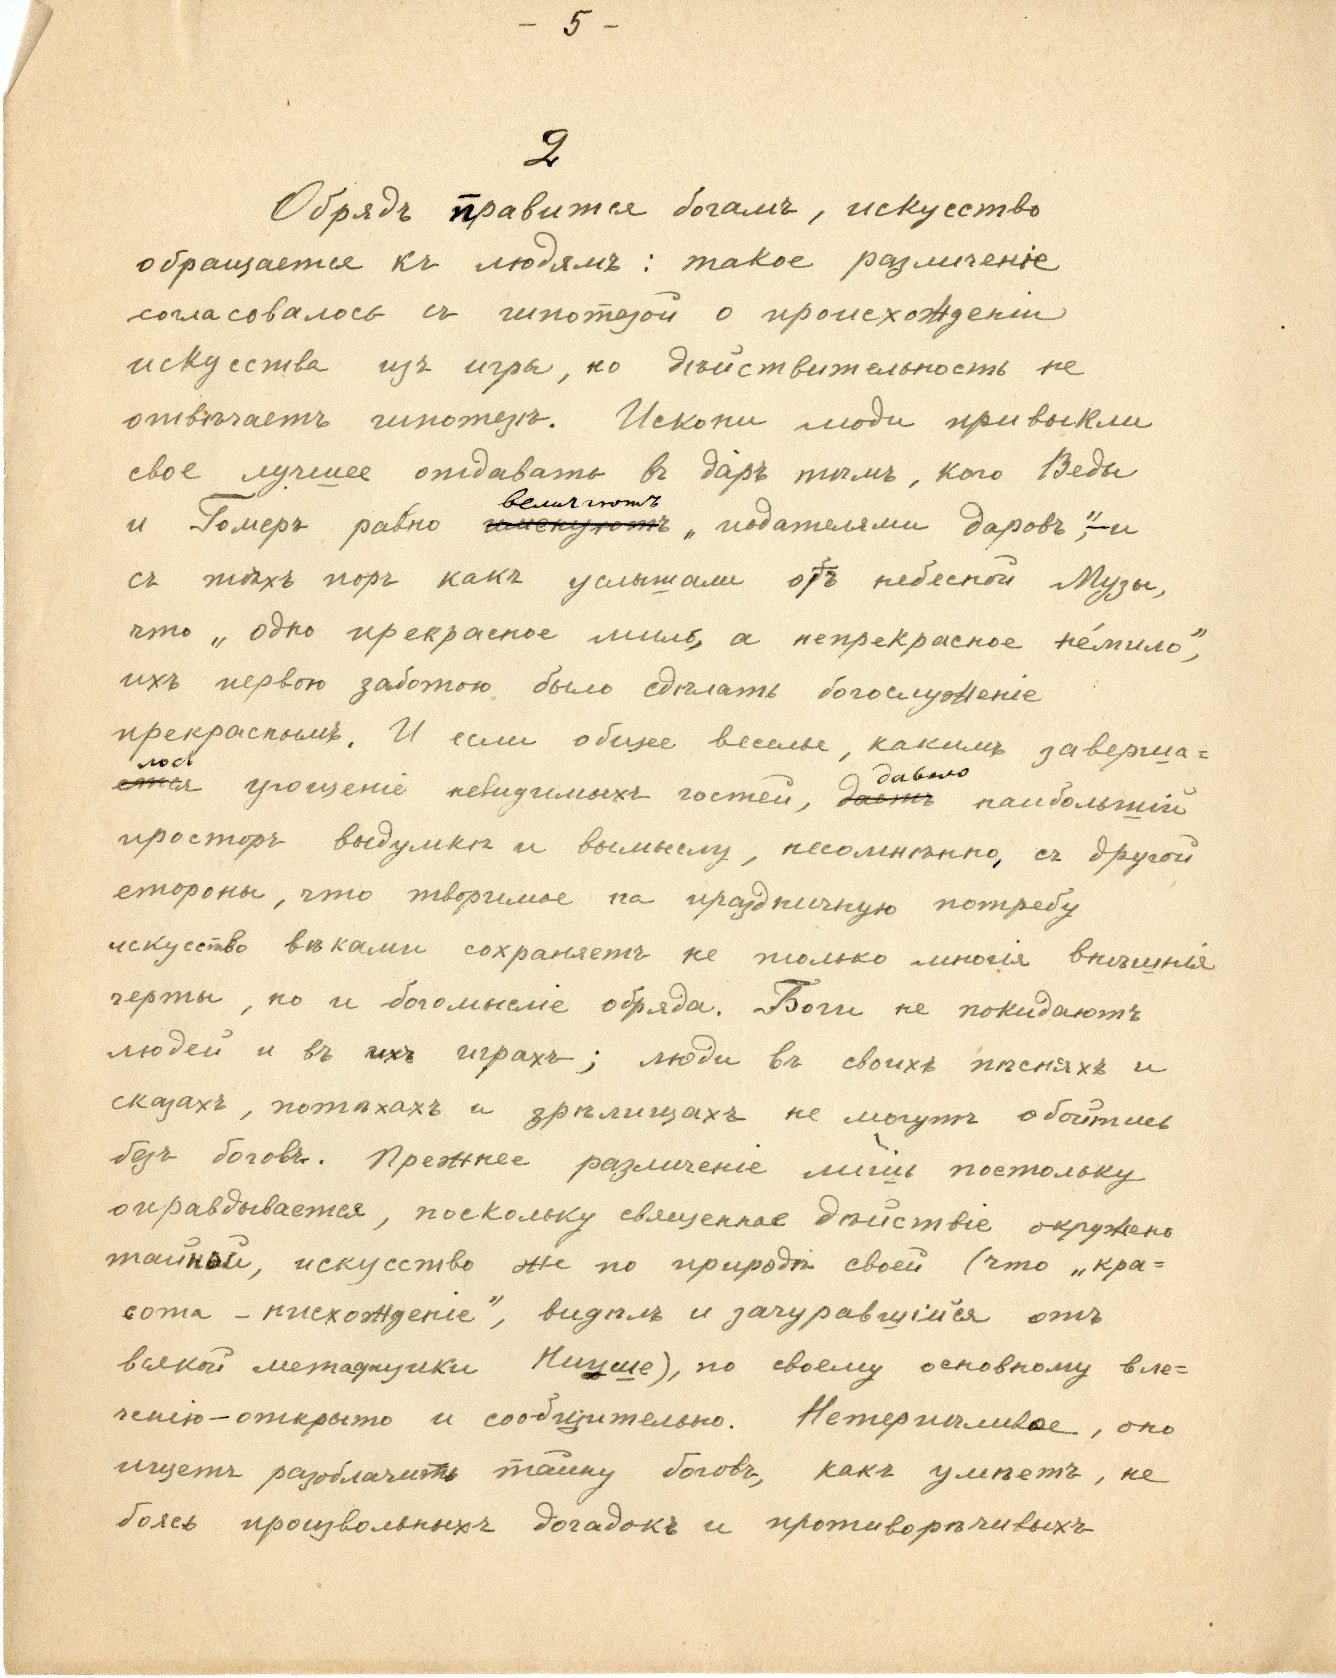 - 5 -
2
Обрядъ правится богамъ, искусство
обращается къ людямъ: такое различеніе
согласовалось съ гипотезой о происхожденіи
искусства изъ игры, но дѣйствительность не
отвѣчаетъ гипотезѣ. Искони люди привыкли
свое лучшее отдавать въ даръ тѣмъ, кого Веды
величаютъ
и Гомеръ равно именуютъ „подателями даровъ", — и
съ тѣхъ поръ какъ услышали отъ небесной Музы,
что „одно прекрасное мило, а непрекрасное не́мило",
ихъ первою заботою было сдѣлать богослуженіе
прекраснымъ. И если общее веселье, какимъ заверша=
лось давало
ется угощеніе невидимыхъ гостей, даетъ наибольшій
просторъ выдумкѣ и вымыслу, несомнѣнно, съ другой
стороны, что творимое на праздничную потребу
искусство вѣками сохраняетъ не только многія внѣшнія
черты, но и богомысліе обряда. Боги не покидаютъ
людей и въ ихъ играхъ; люди въ своихъ пѣсняхъ и
сказахъ, потѣхахъ и зрѣлищахъ не могутъ обойтись
безъ боговъ. Прежнее различеніе лишь постольку
оправдывается, поскольку священное дѣйствіе окружено
тайной, искусство же по природѣ своей (что „кра=
сота – нисхожденіе", видѣлъ и зачуравшійся отъ
всякой метафизики Ницше), по своему основному вле=
ченію – открыто и сообщительно. Нетерпѣливое, оно
ищетъ разоблачить тайну боговъ, какъ умѣетъ, не
боясь произвольныхъ догадокъ и противорѣчивыхъ